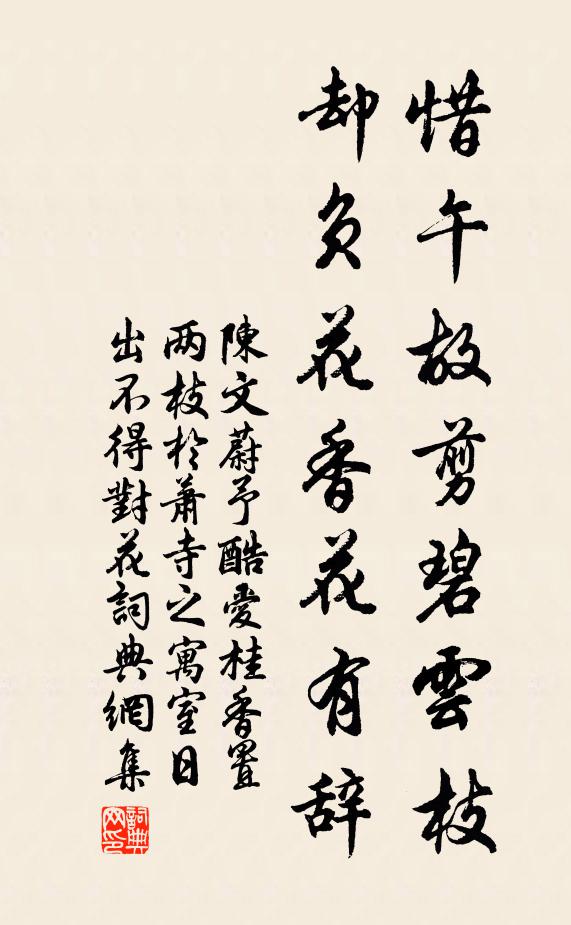 惜午故剪碧雲枝
却负花香花有辞
陳文蔚予酷愛桂香置
两枝於蕭寺之寓室日
出不得對花詞典網集
詞典网印